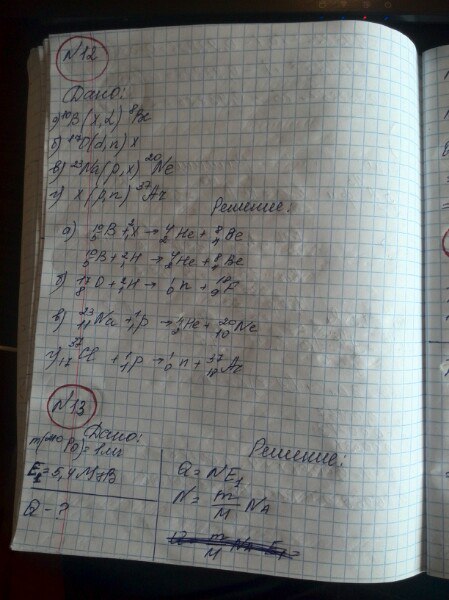 N12
Дано:
а) ¹⁰B(x,α) ⁸Be
б) ¹⁷O(d,n) x
в) ²³Na(p,x) ²⁰Ne
г) x (p,n) ³⁷Ar
Решение:
а) ¹⁰₅B + ²₁x → ⁴₂He + ⁸₄Be
¹⁰₅B + ²₁H → ⁴₂He + ⁸₄Be
б) ¹⁷₈O + ²₁H → ¹₀n + ¹⁸₉F
в) ²³₁₁Na + ¹₁p → ⁴₂He + ²⁰₁₀Ne
г) ³⁷₁₇Cl + ¹₁p → ¹₀n + ³⁷₁₈Ar
N13
Дано:
Решение:
m(²¹⁰Po) = 1 мг
E₁ = 5,4 МэВ
Q = NE₁
N = m/M N_A
Q - ?